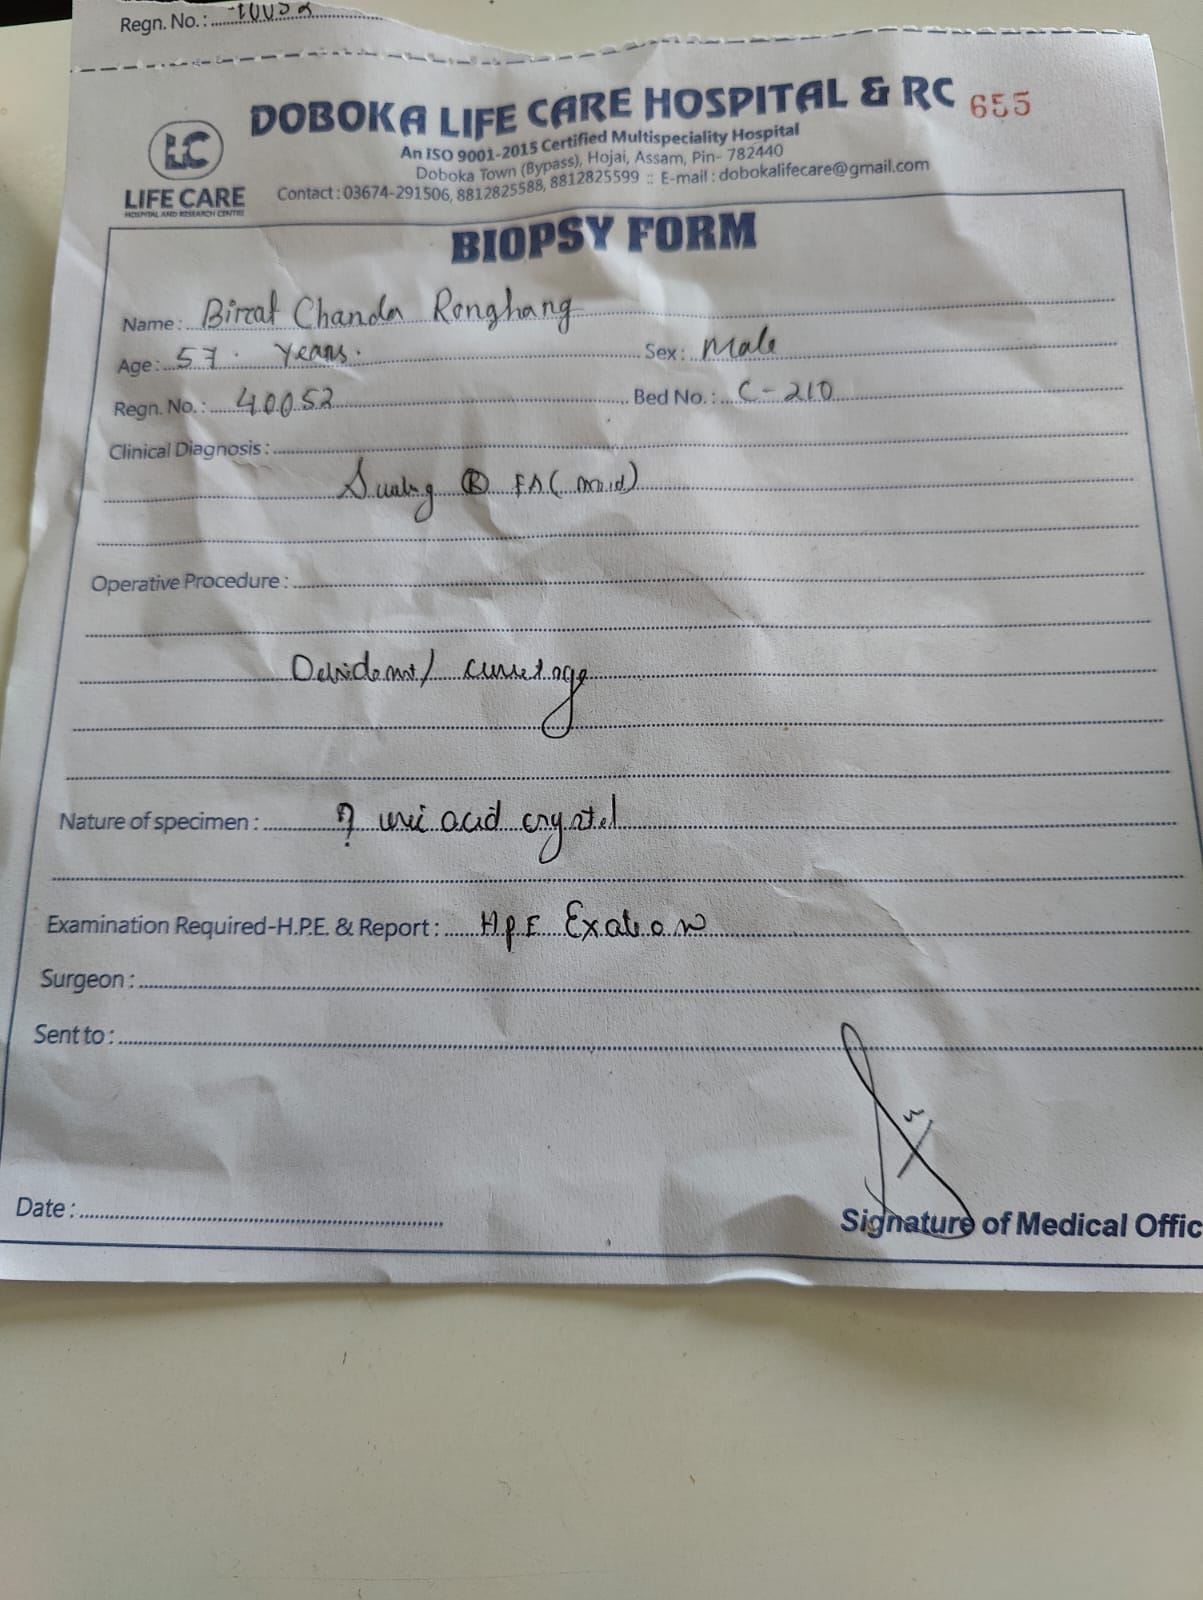 Regn. No. :
DOBOKA LIFE CARE HOSPITAL & RC 655
An ISO 9001-2015 Certified Multispeciality Hospital
Doboka Town (Bypass), Hojai, Assam, Pin- 782440
Contact : 03674-291506, 8812825588, 8812825599 :: E-mail : dobokalifecare@gmail.com
LC
LIFE CARE
HOSPITAL AND RESEARCH CENTRE
BIOPSY FORM
Name : Bircat Chanda Ronghang
Age : 57 Years. Sex : Male
Regn. No. : 40052 Bed No. : C-210
Clinical Diagnosis :
(R)
Operative Procedure :
Nature of specimen : ? uric acid crystel
Examination Required-H.P.E. & Report : HPE
Surgeon :
Sent to :
Date :
Signature of Medical Offic